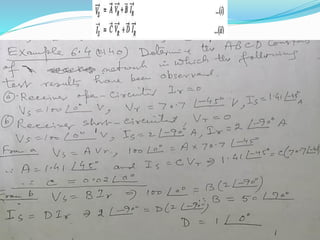 V̄s = Ā V̄R + B̄ ĪR ...(i)
Īs = C̄ V̄R + D̄ ĪR ...(ii)
Example 6.4 Determine the ABCD constants
of network in which the following
test results have been observed.
(a) Receiver open-circuited Ir=0
Vs=100∠0° V, Vr=70.7∠-45° V, Is=1.41∠45° A
(b) Receiver short-circuited, Vr=0
Vs=100∠0° V, Is=2∠-90° A, Ir=2∠-90° A
From a Vs=AVr, 100∠0°=A×70.7∠-45
∴ A=1.41∠45° and Is=CVr → 1.41∠45°=C(70.7∠-45)
∴ C=0.02∠
From b Vs=BIr → 100∠0°=B(2∠-90°)
∴ B=50∠90°
Is=DIr → 2∠-90°=D(2∠-90°)
D=1∠0°